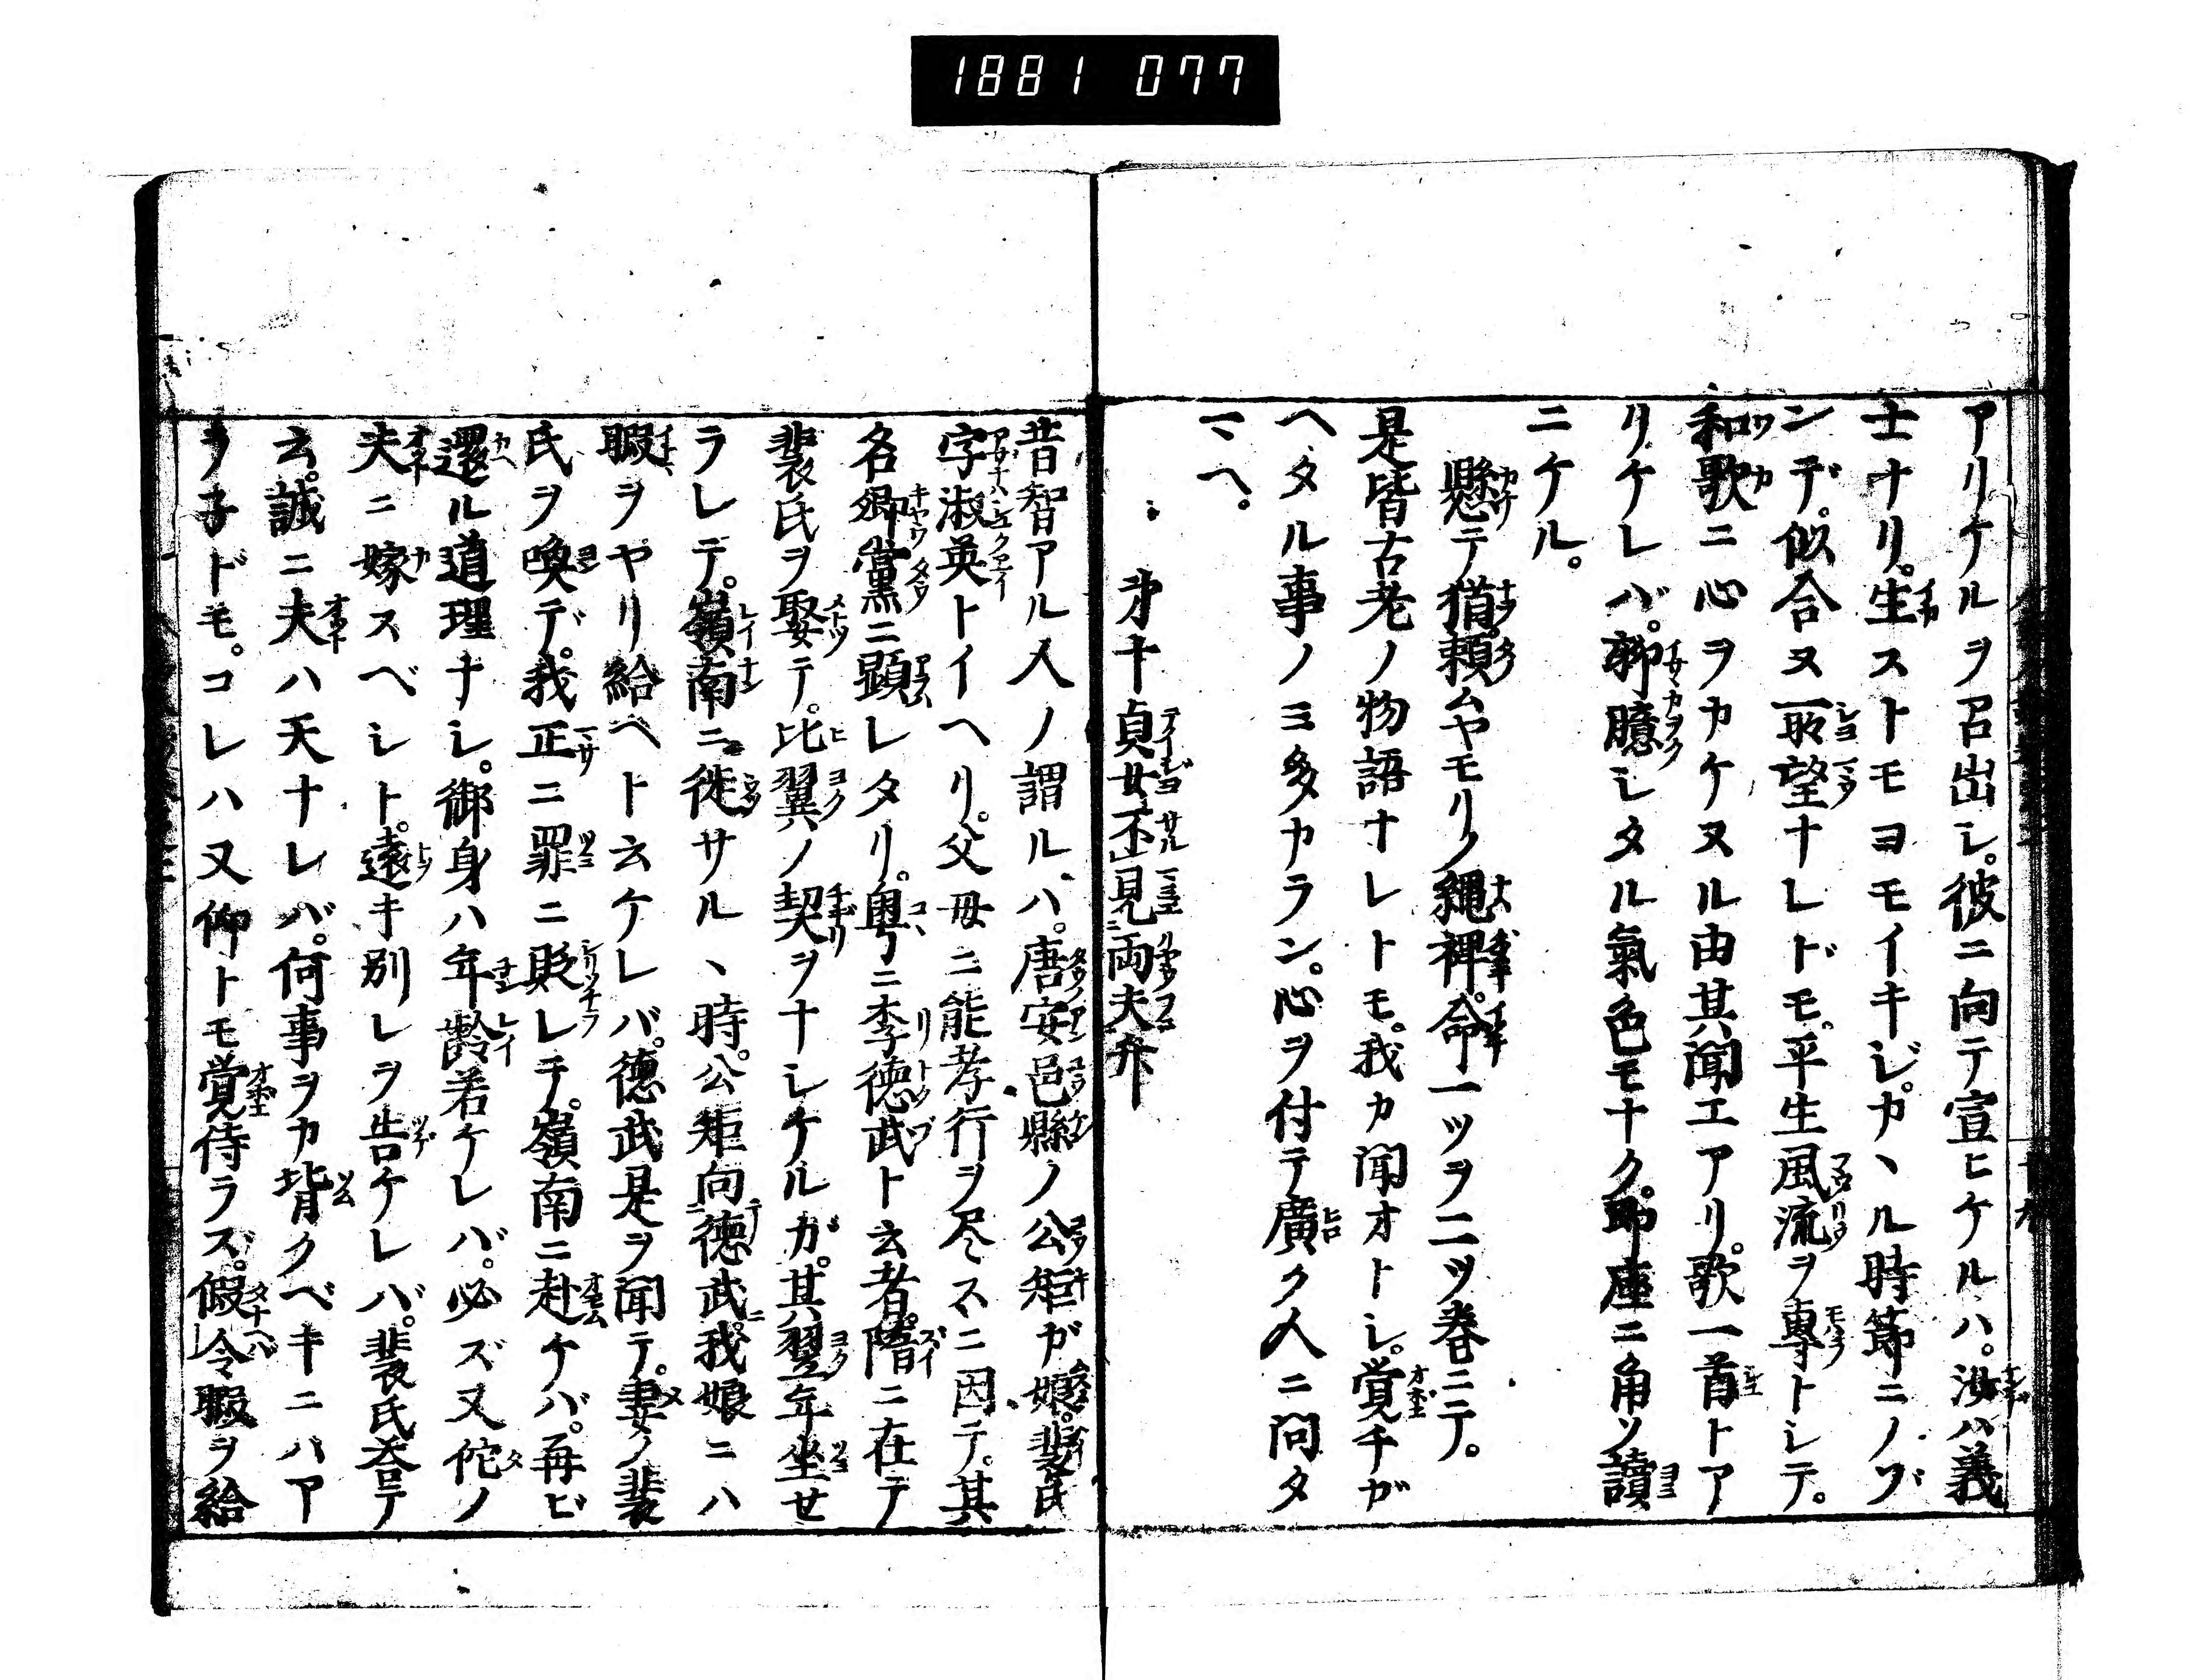 1881 077
アリケルヲ召出シ。彼ニ向テ宣ヒケルハ。汝ハ義
士ナリ。生ストモヨモイキジ。カヽル時節ニノゾ
ンデ。似合ヌ所望ナレドモ。平生風流ヲ専トシテ。
和歌ニ心ヲカケヌル由其聞エアリ。歌一首トア
リケレバ。聊臆シタル氣色モナク。即座ニ角ソ讀
ニケル。
懸テ猶。頼ムヤモリノ縄裨。命一ツヲ二ツ巻ニテ。
是皆古老ノ物語ナレトモ。我カ聞オトシ。覚チガ
ヘタル事ノミ多カラン。心ヲ付テ廣ク人ニ問タ
マヘ。
第十貞女不見両夫弁
昔智アル人ノ謂ルハ。唐安邑縣ノ公矩ガ娘。裴氏
字淑英トイヘリ。父母ニ能孝行ヲ尽スニ因テ。其
名郷黨ニ顕レタリ。粤ニ李徳武ト云者。隋ニ在テ
裴氏ヲ娶テ。比翼ノ契ヲナシケルガ。其翌年坐セ
ラレテ。嶺南ニ徙サルヽ時。公矩向徳武。我娘ニハ
暇ヲヤリ給ヘト云ケレバ。徳武是ヲ聞テ。妻ノ裴
氏ヲ喚デ。我正ニ罪ニ貶レテ。嶺南ニ赴ケバ。再ビ
還ル道理ナシ。御身ハ年齢若ケレバ。必ズ又佗ノ
夫ニ嫁スベシト。遠キ別レヲ告ケレバ。裴氏荅テ
云。誠ニ夫ハ天ナレバ。何事ヲカ背クベキニハア
ヲ子ドモ。コレハ又仰トモ覚侍ラズ。假令暇ヲ給